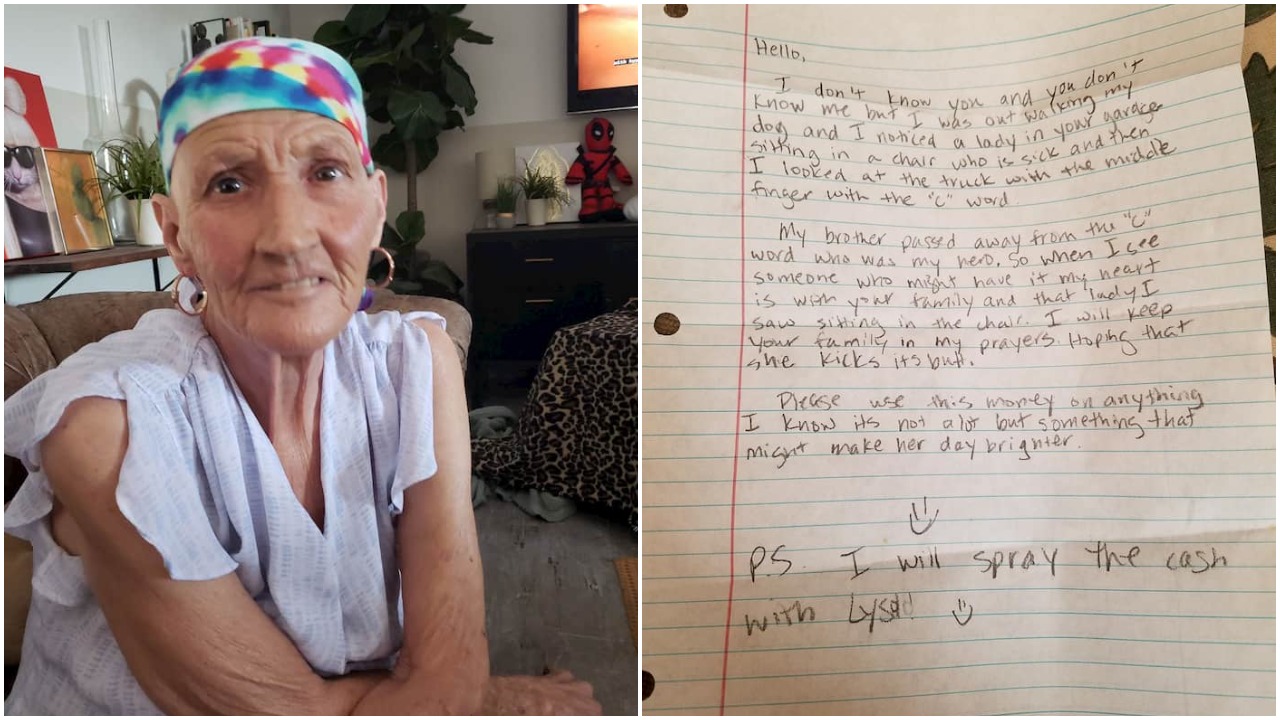 Hello,
I don't know you and you don't
know me but I was out walking my
dog and I noticed a lady in your garage
sitting in a chair who is sick and then
I looked at the truck with the middle
finger with the "C" word
My brother passed away from the "C"
word who was my hero. So when I see
someone who might have it my heart
is with your family and that lady I
saw sitting in the chair. I will keep
your family in my prayers. Hoping that
she kicks its butt.
Please use this money on anything
I know its not a lot but something that
might make her day brighter.
P.S. I will spray the cash
with Lysol!